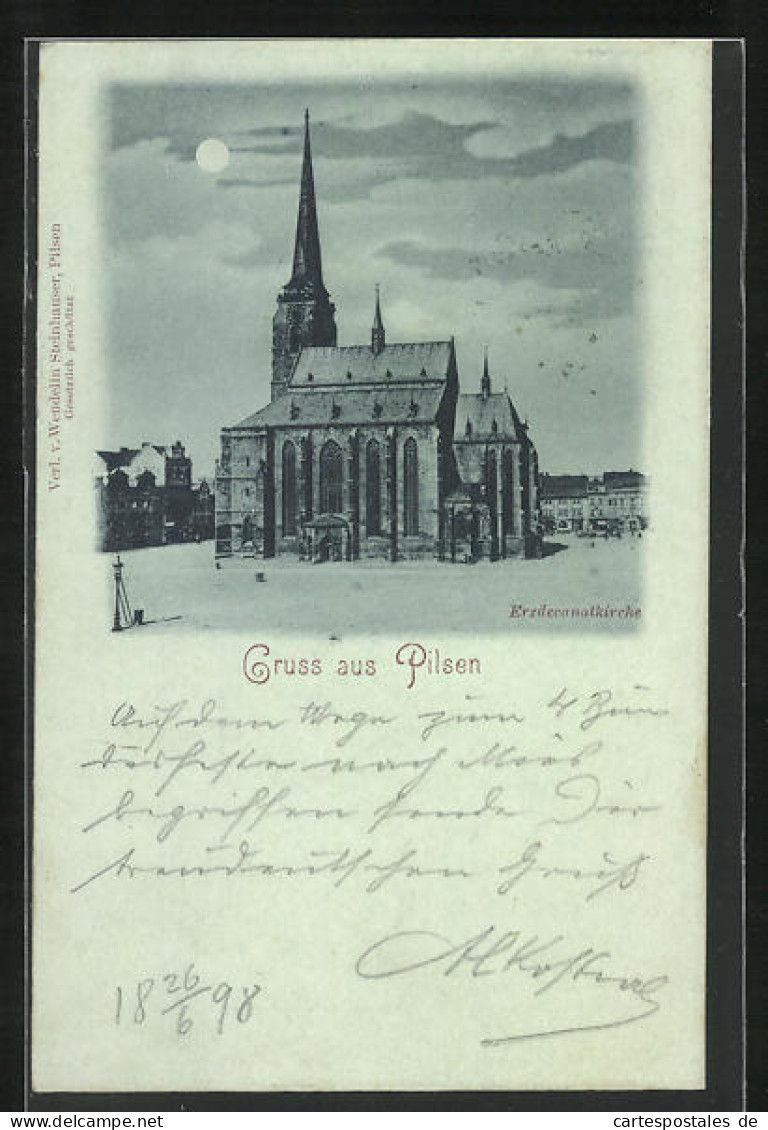 Verl. v. Wendelin Steinhauser, Pilsen
Gesetzlich geschützt
Erzdecanatkirche
Gruss aus Pilsen
Auf dem Wege zum 4 Bün
desfeste nach Mies
begriffen sende Dir
treudeutschen Gruß
18 26/6 98
cartespostales de